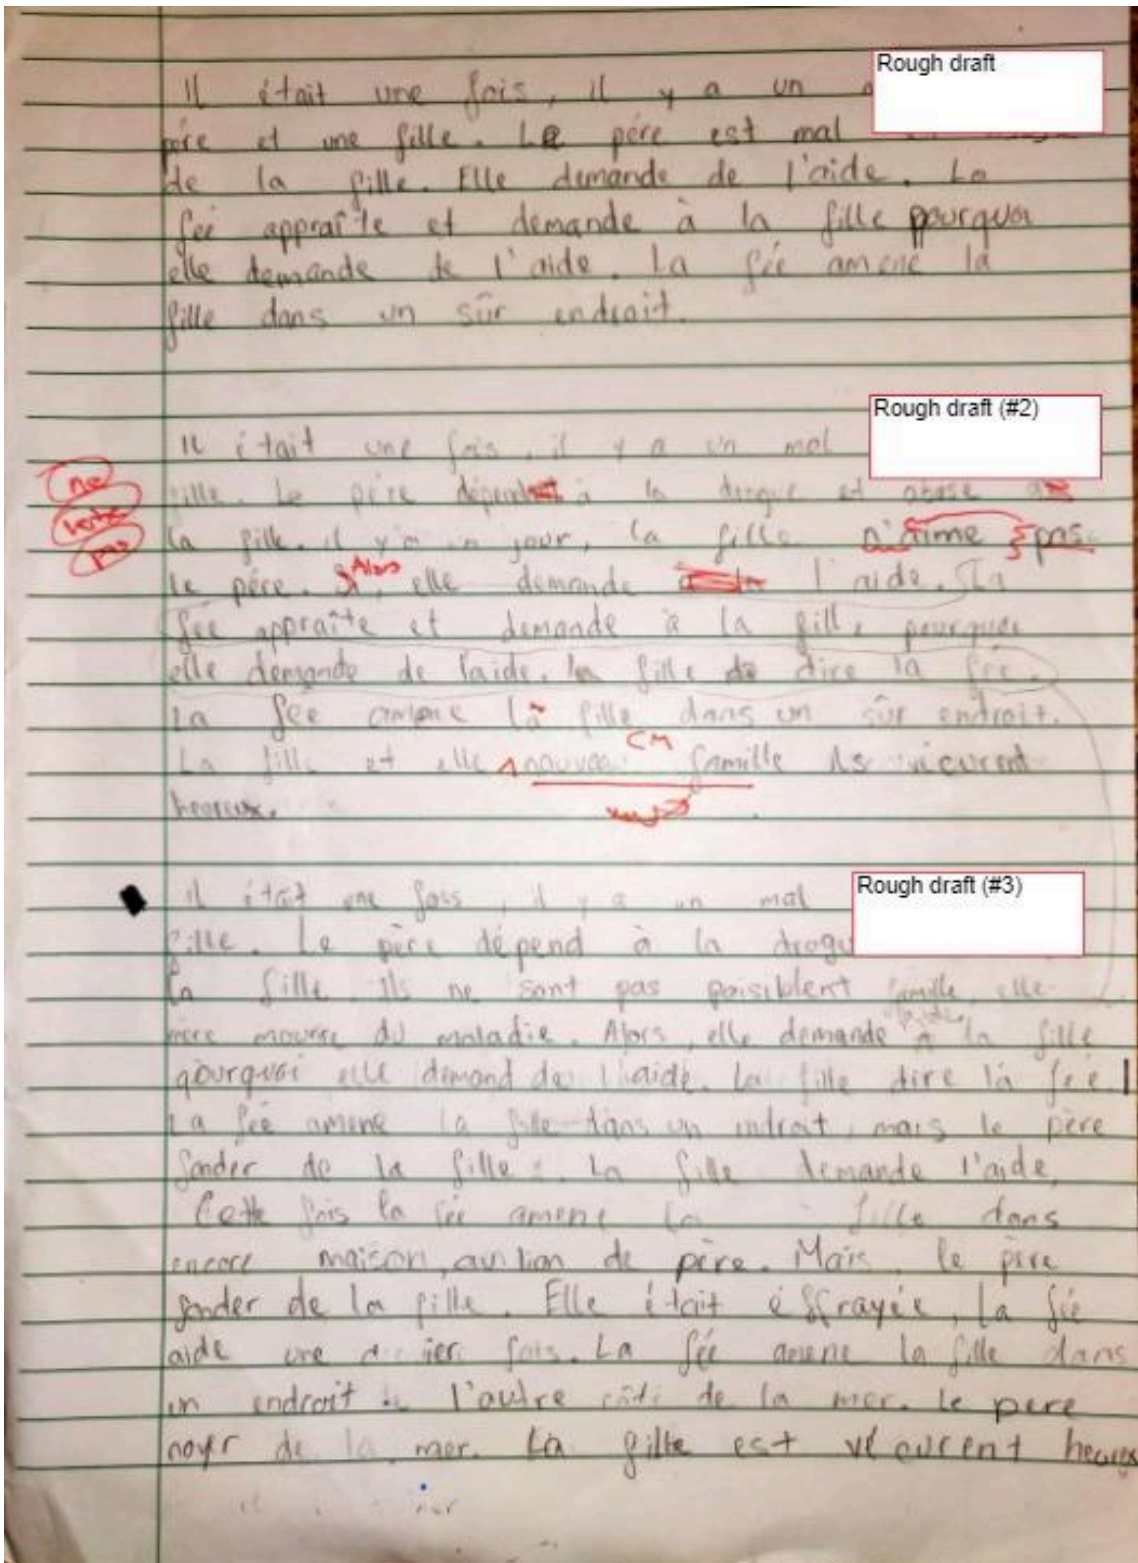 Rough draft
Il était une fois, il y a un
père et une fille. Le père est mal
de la fille. Elle demande de l'aide. La
fée appraîte et demande à la fille pourquoi
elle demande de l'aide. La fée amene la
fille dans un sûr endroit.
Rough draft (#2)
Il était une fois, il y a un mal
fille. Le père dépend à la drogue et abuse
ne
verbe
pas
la fille. il y a un jour, la fille n'aime pas
le père. Alors, elle demande l'aide. La
fée appraîte et demande à la fille pourquoi
elle demande de l'aide. la fille dire la fée.
La fée amene la fille dans un sûr endroit.
CM
La fille et elle famille ils vécurent
heureux.
Rough draft (#3)
Il était une fois, il y a un mal
fille. Le père dépend à la drogue
la fille. Ils ne sont pas paisiblent famille, elle
mère du maladie. Alors, elle demande à la fille
pourquoi elle demand de l'aide. La fille dire la fée.
La fée amene la fille dans un endroit, mais le père
fonder de la fille. La fille demande l'aide,
Cette fois la fée amene la fille dans
encore maison, de père. Mais, le père
fonder de la fille. Elle était effrayée, la fée
aide une fois. La fée amene la fille dans
un endroit l'autre côté de la mer. Le père
noyer de la mer. La fille est vécurent heureux